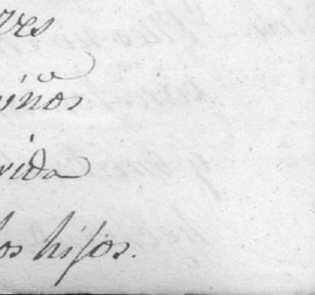 res
niños
rida
los hijos.